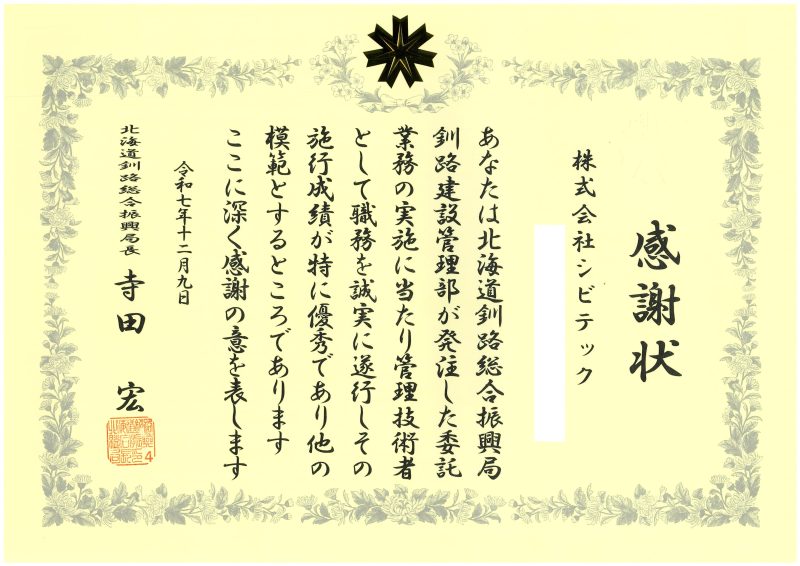 感謝状
株式会社シビテック
あなたは北海道釧路総合振興局
釧路建設管理部が発注した委託
業務の実施に当たり管理技術者
として職務を誠実に遂行しその
施行成績が特に優秀であり他の
模範とするところであります
ここに深く感謝の意を表します
令和七年十二月九日
北海道釧路総合振興局長 寺田 宏
4